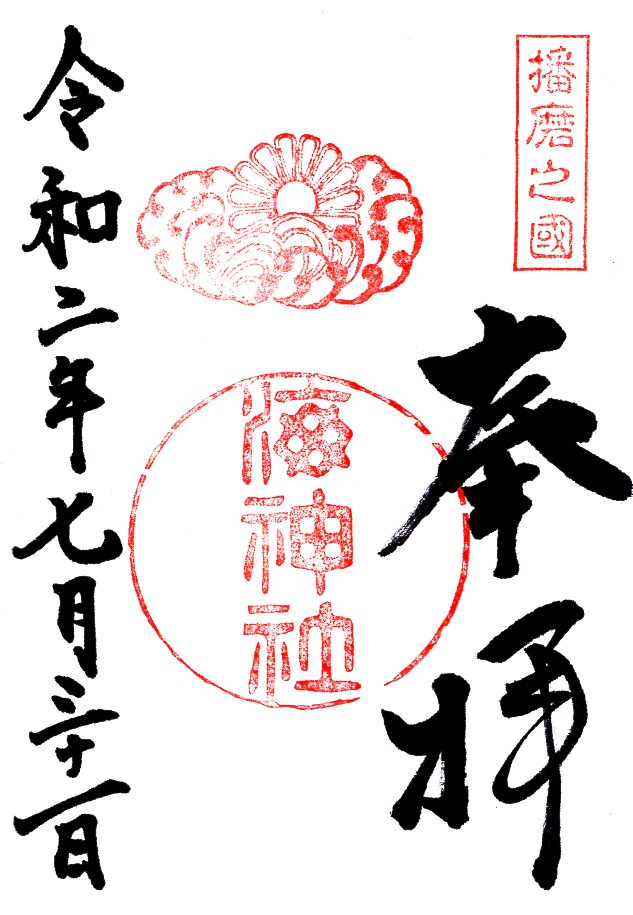 播磨之國
奉拝
海神社
令和二年七月三十一日